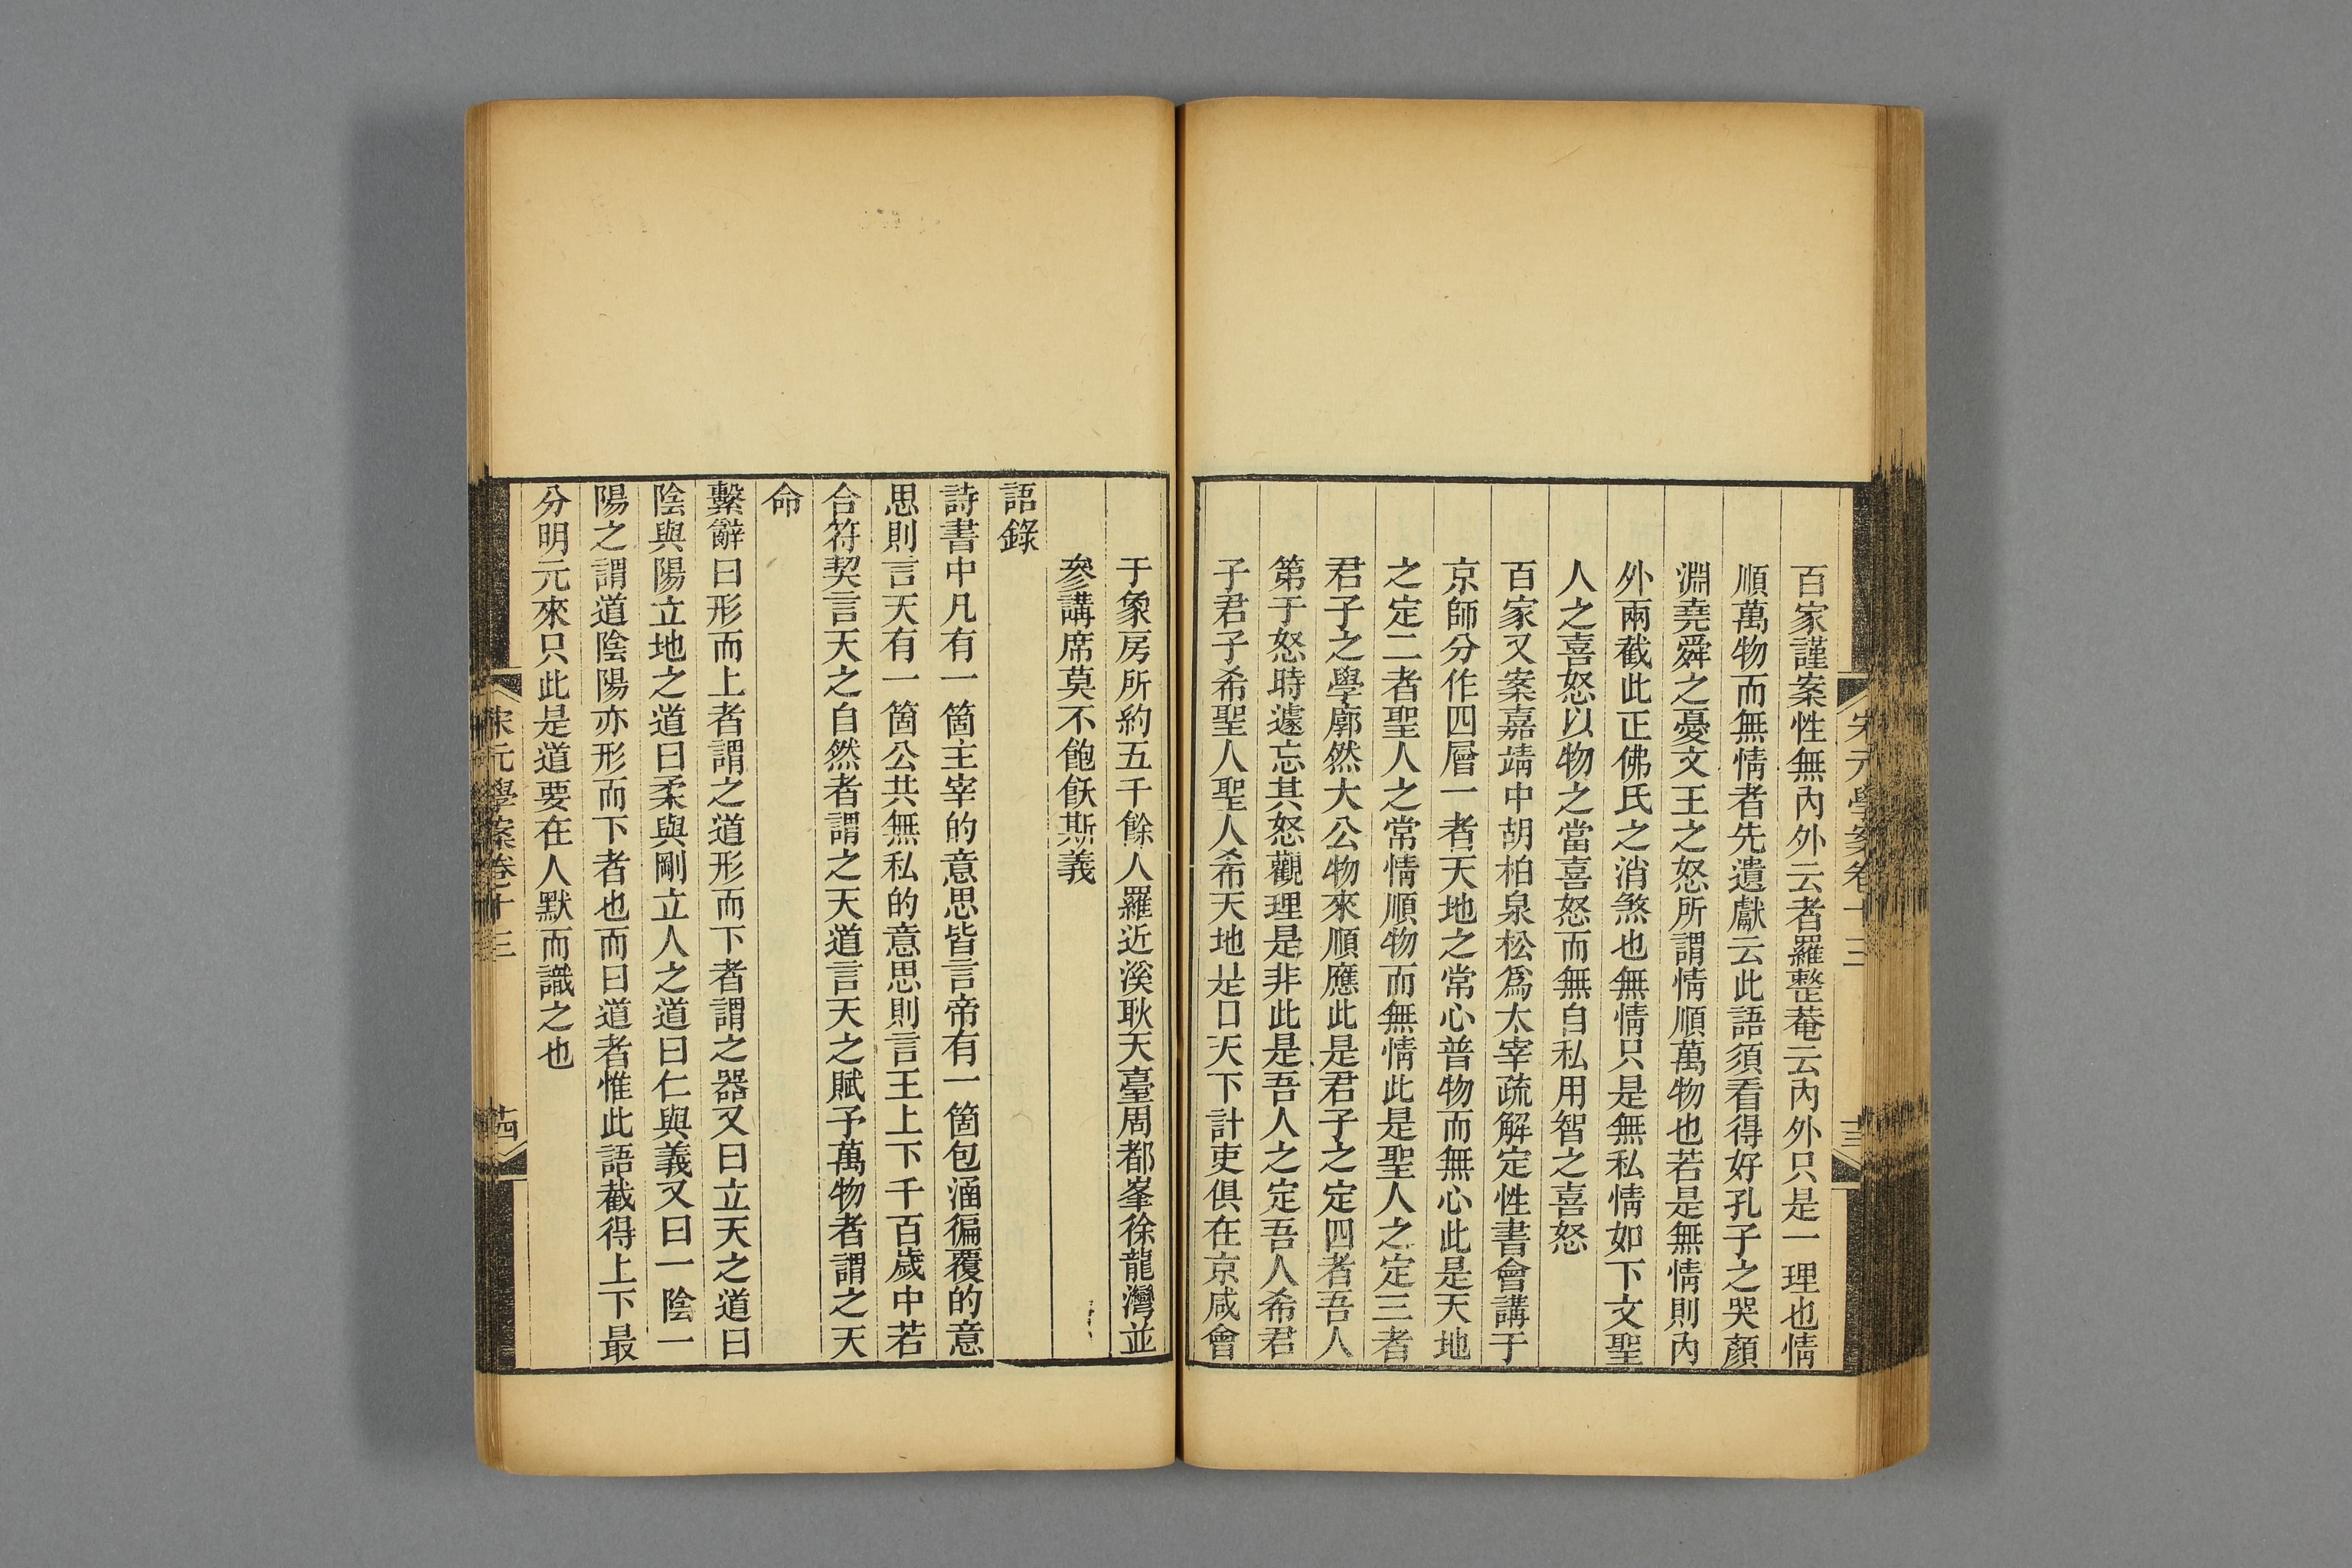 宋元學案卷十三
十三
百家謹案性無內外云者羅整菴云內外只是一理也情
順萬物而無情者先遺獻云此語須看得好孔子之哭顏
淵堯舜之憂文王之怒所謂情順萬物也若是無情則內
外兩截此正佛氏之消煞也無情只是無私情如下文聖
人之喜怒以物之當喜怒而無自私用智之喜怒
百家又案嘉靖中胡柏泉松爲太宰疏解定性書會講于
京師分作四層一者天地之常心普物而無心此是天地
之定二者聖人之常情順物而無情此是聖人之定三者
君子之學廓然大公物來順應此是君子之定四者吾人
第于怒時遽忘其怒觀理是非此是吾人之定吾人希君
子君子希聖人聖人希天地是日天下計吏俱在京咸會
于象房所約五千餘人羅近溪耿天臺周都峯徐龍灣並
參講席莫不飽飫斯義
語錄
詩書中凡有一箇主宰的意思皆言帝有一箇包涵徧覆的意
思則言天有一箇公共無私的意思則言王上下千百歲中若
合符契言天之自然者謂之天道言天之賦予萬物者謂之天
命
繫辭曰形而上者謂之道形而下者謂之器又曰立天之道曰
陰與陽立地之道曰柔與剛立人之道曰仁與義又曰一陰一
陽之謂道陰陽亦形而下者也而曰道者惟此語截得上下最
分明元來只此是道要在人默而識之也
宋元學案卷十三
十四